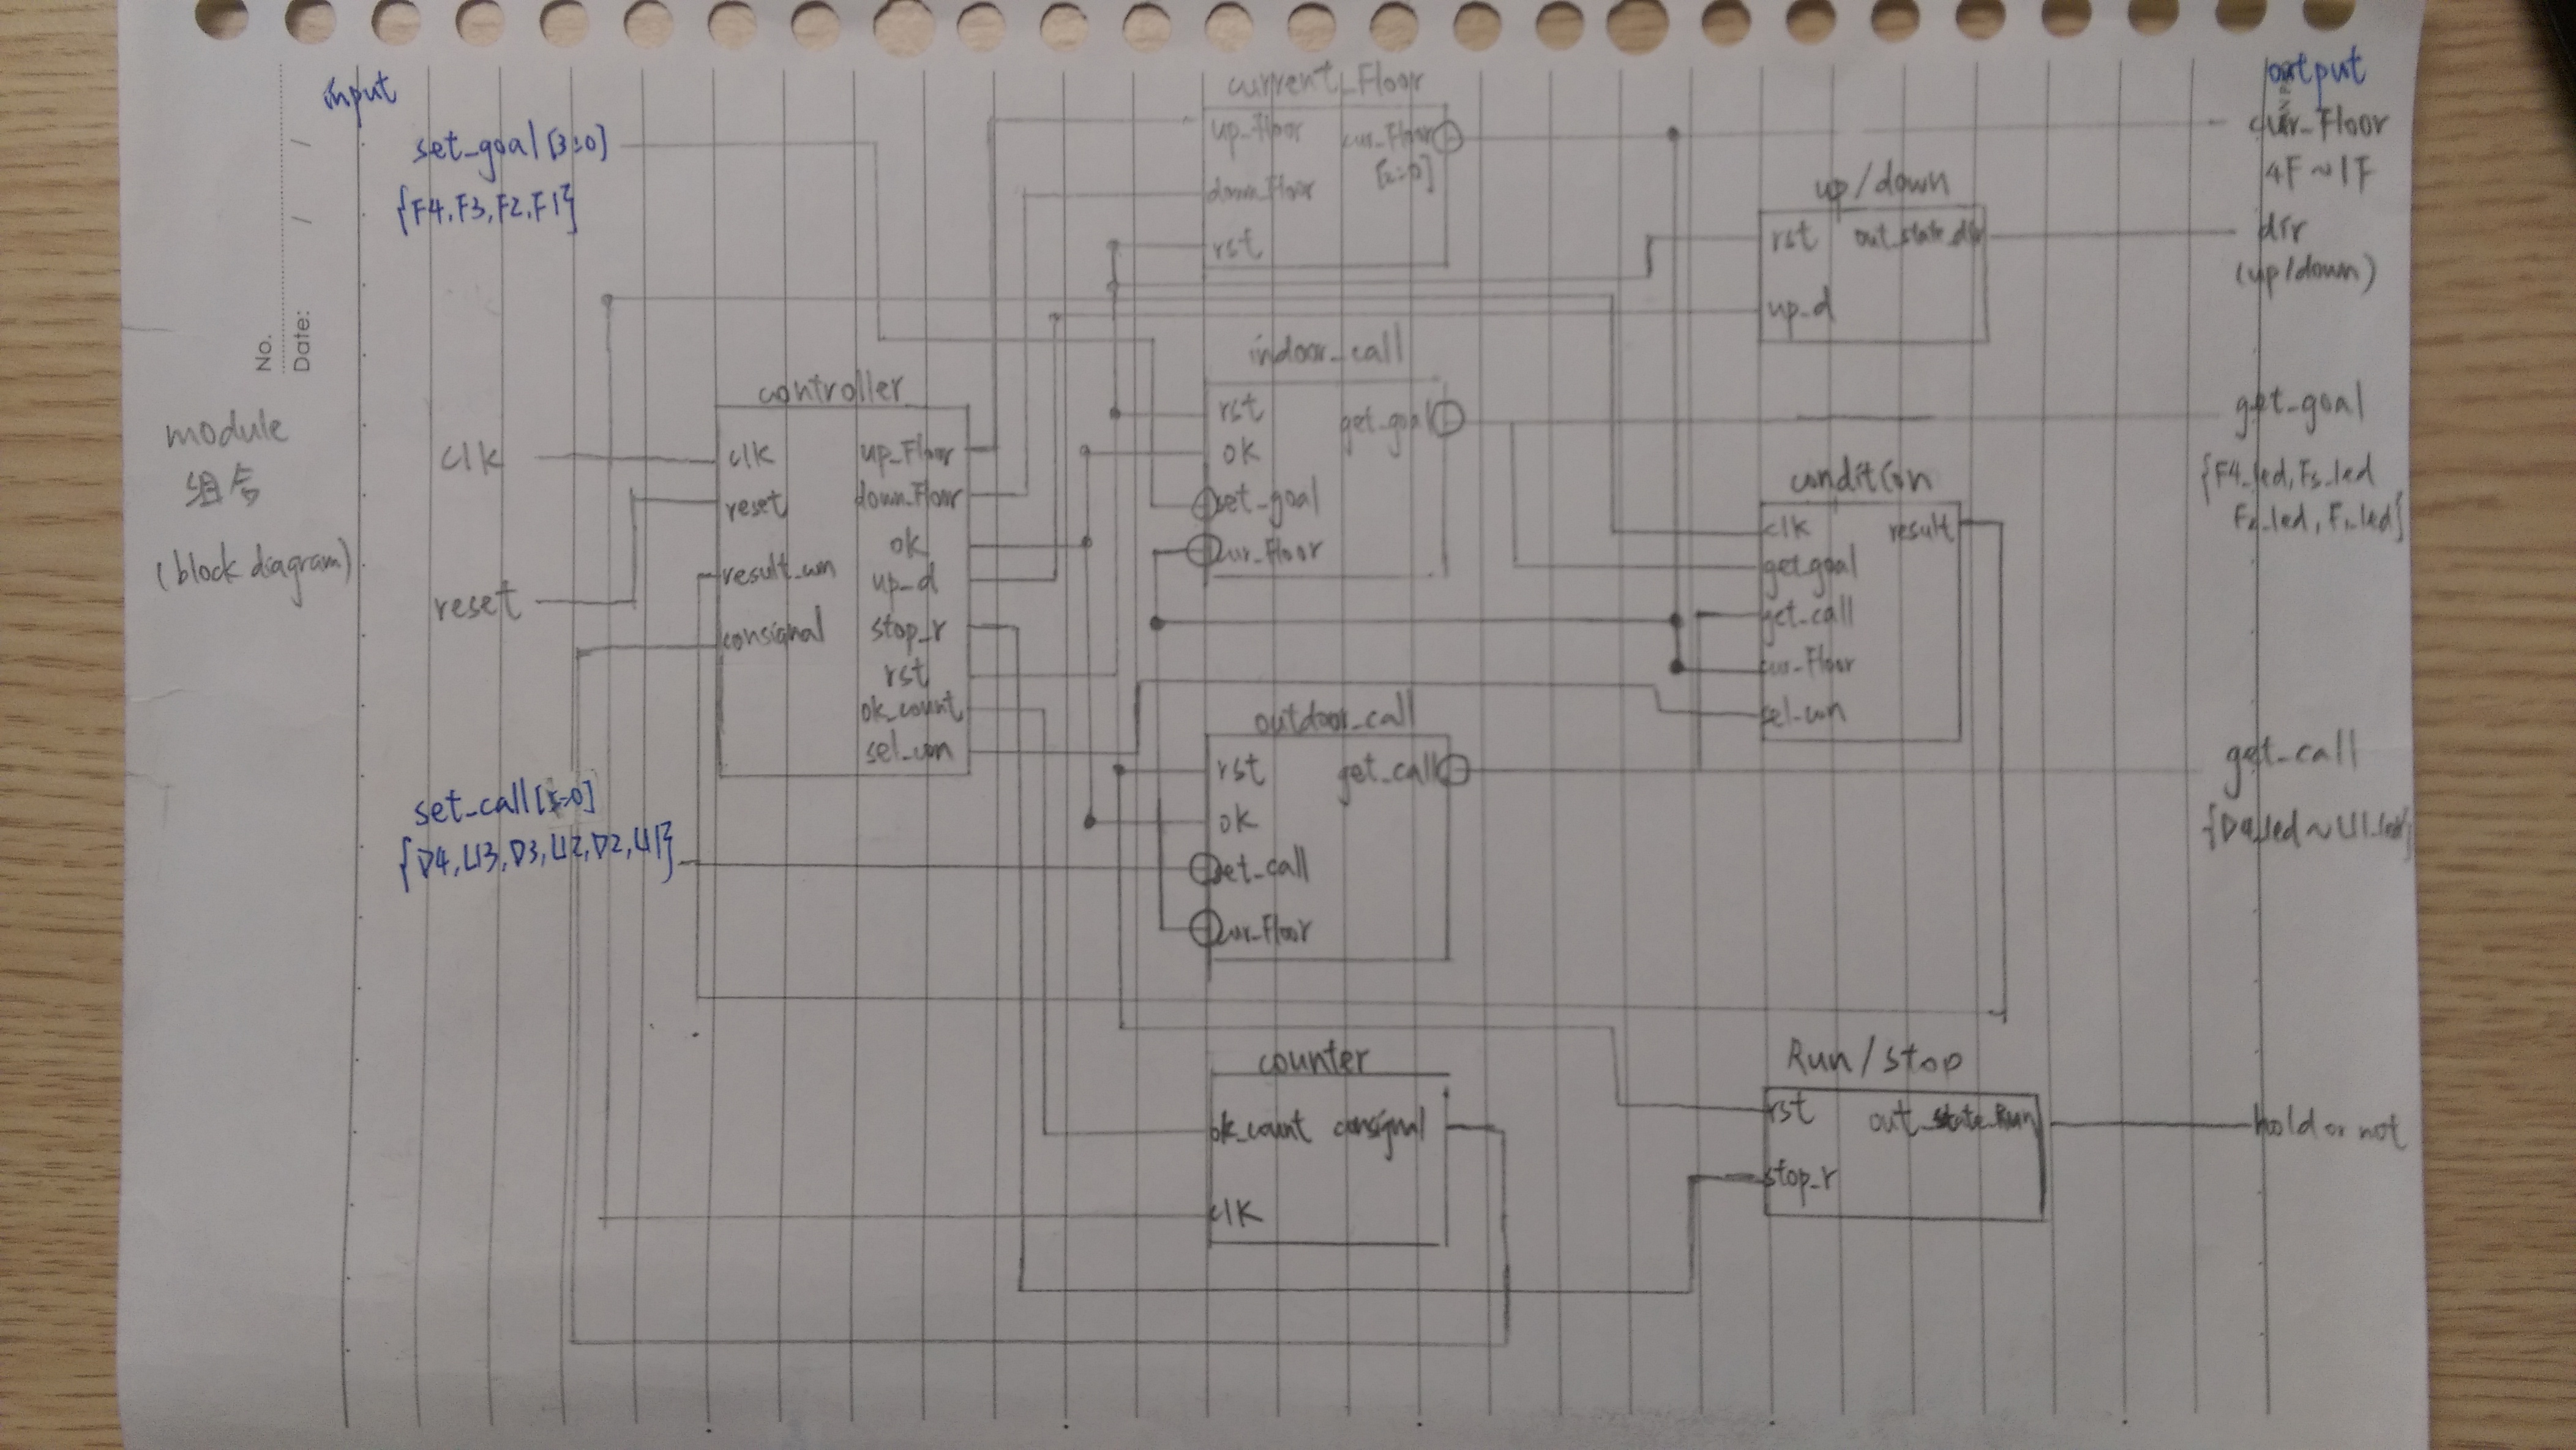 input
set_goal[3:0]
{F4,F3,F2,F1}
No.
Date:
module
组合
(block diagram)
clk
reset
set_call[5:0]
{D4,U3,D3,U2,D2,U1}
controller
clk
reset
result_con
consignal
up_Floor
down_Floor
ok
up_d
stop_r
rst
ok_count
sel_con
current_Floor
up_Floor
cur_Floor
[2:0]
down_Floor
rst
indoor_call
rst
get_goal
ok
set_goal
cur_Floor
outdoor_call
rst
get_call
ok
set_call
cur_Floor
counter
ok_count
consignal
clk
up/down
rst
out_state_dir
up_d
condition
clk
result
get_goal
get_call
cur_Floor
sel_con
Run/stop
rst
out_state_Run
stop_r
output
cur_Floor
4F~1F
dir
(up/down)
get_goal
{F4_led,F3_led
F2_led,F1_led}
get_call
{D4_led~U1_led}
hold or not